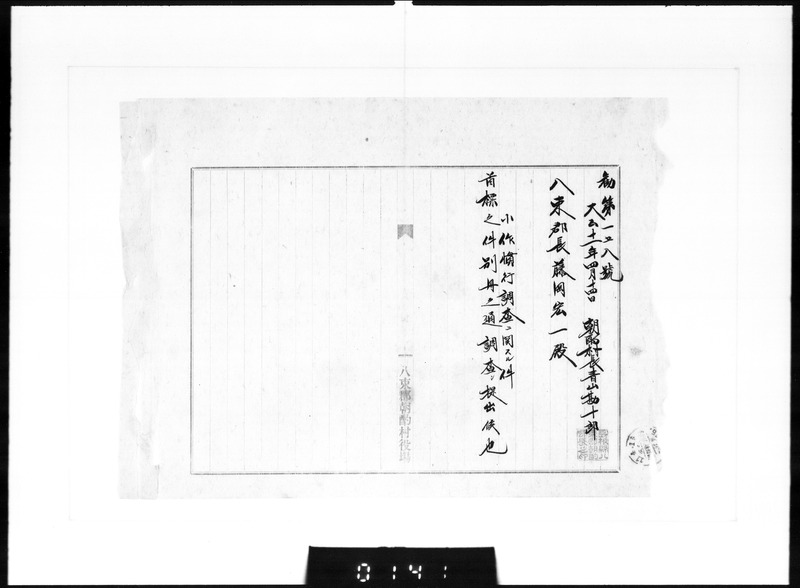 勧第一二八號
大正十一年四月十四日
朝酌村長青山勘十郎
八束郡長藤岡宏一殿
小作慣行調査ニ関スル件
首標之件別冊之通調査シ提出候也
八束郡朝酌村役場
0141